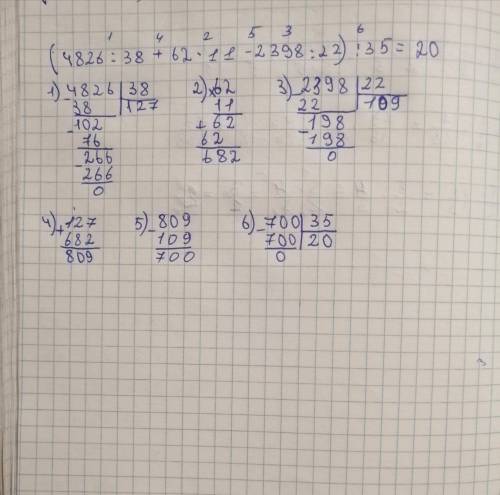 1 4 2 5 3 6
(4826:38+62·11-2398:22):35=20
1) 4826 38 2) ×62 3) 2398 22
-38 127 11 22 109
-102 +62 -198
76 62 198
-266 682 0
266
0
4) +127 5) -809 6) -700 35
682 109 700 20
809 700 0